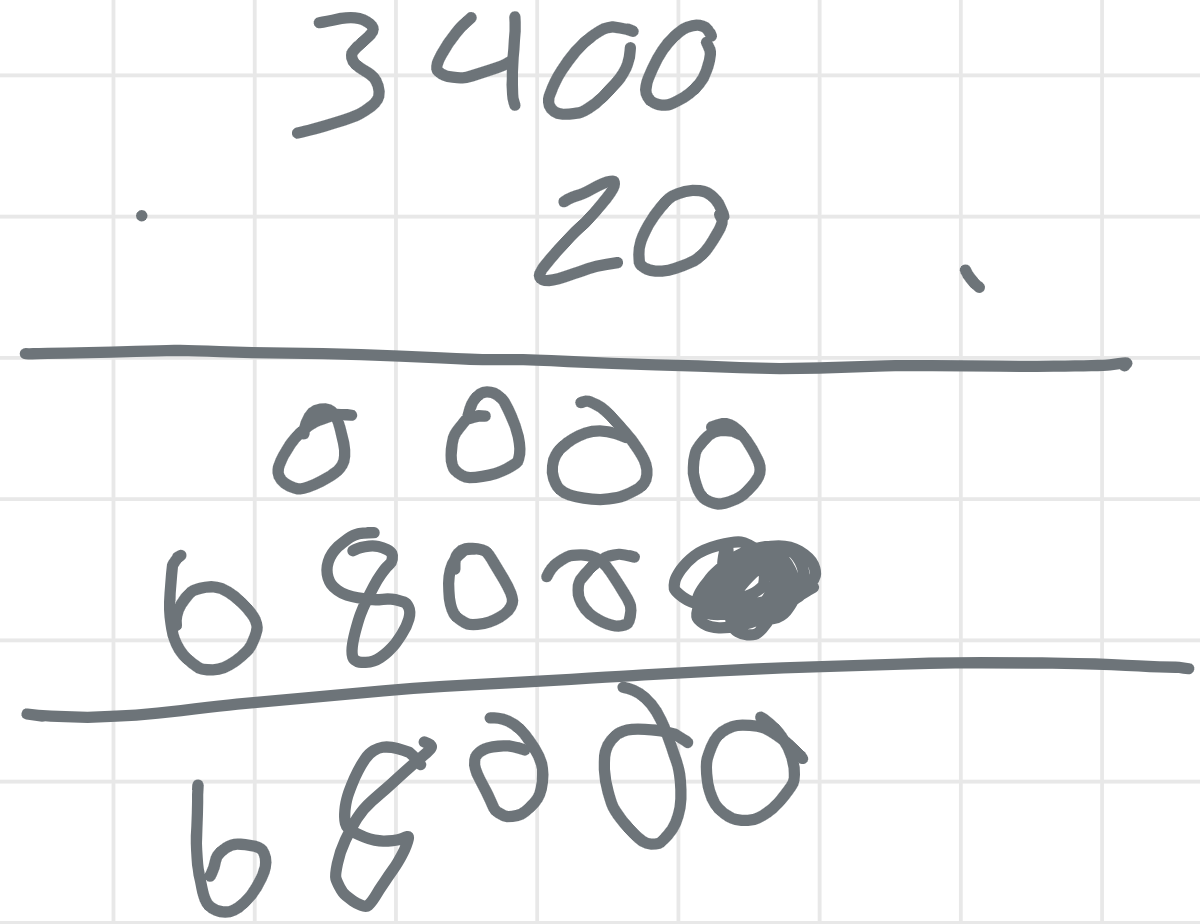 3400
20
0000
6800
68000